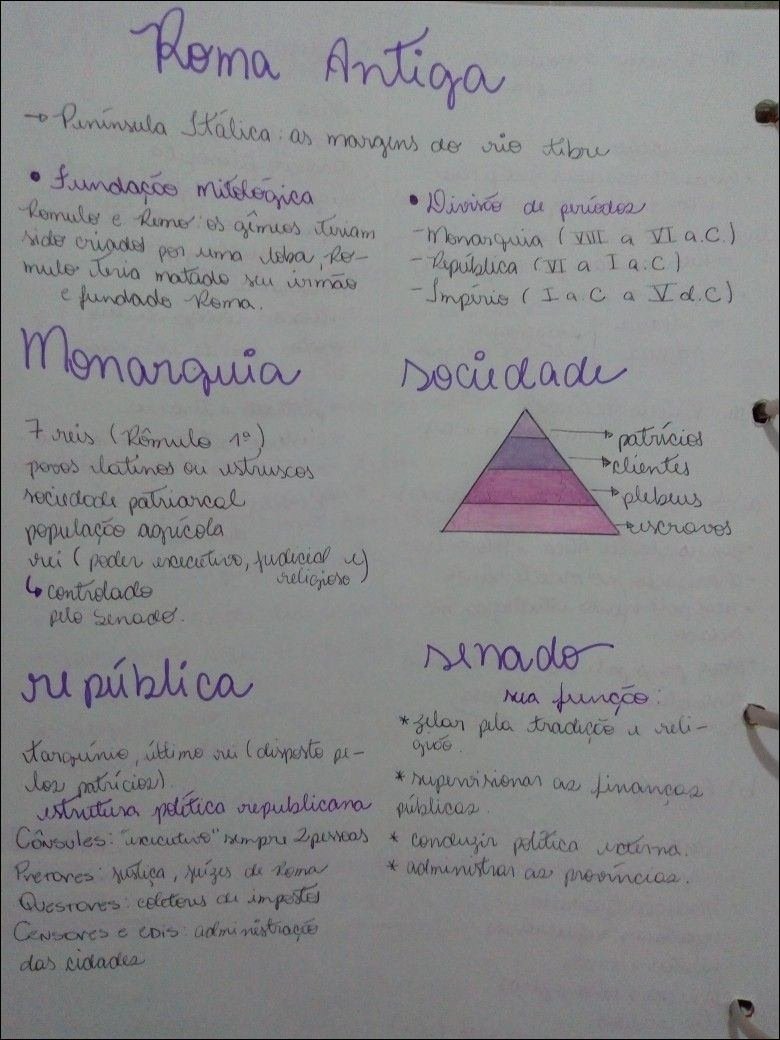 Roma Antiga
→ Península Itálica: as margens do rio tibre
• Fundação mitológica
Romulo e Remo: os gêmeos teriam
sido criados por uma loba, Rô-
mulo teria matado seu irmão
e fundado Roma.
• Divisão de períodos
- Monarquia (VIII a VI a.C.)
- República (VI a I a.C)
- Império (I a.C a V d.C)
Monarquia
7 reis (Rômulo 1º)
povos latinos ou estruscos
sociedade patriarcal
população agrícola
rei (poder executivo, judicial e
religioso)
↳ controlado
pelo Senado.
sociedade
patrícios
clientes
plebeus
escravos
república
tarquínio, último rei (disposto pe-
los patrícios).
estrutura política republicana
Cônsules: "executivo" sempre 2 pessoas
Pretores: justiça, juízes de Roma
Questores: coletores de impostos
Censores e edis: administração
das cidades
senado
sua função:
* zelar pela tradição e reli-
gião.
* supervisionar as finanças
públicas.
* conduzir política externa.
* administrar as províncias.